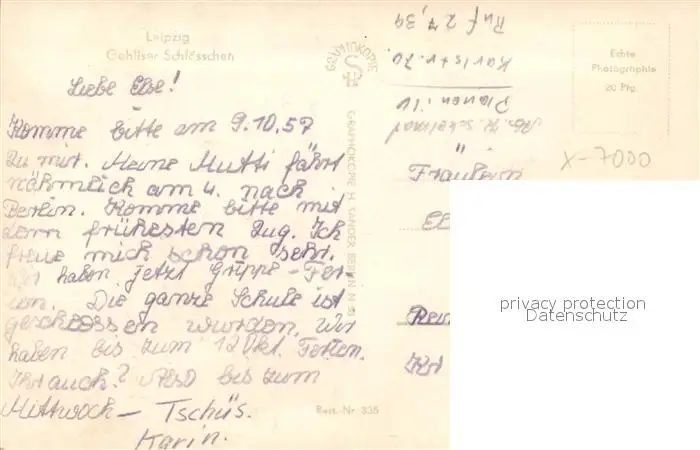 Leipzig
Gohliser Schlösschen
Liebe Else!
Komme bitte am 9.10.57
zu mir. Meine Mutti fährt
nähmlich am 4. nach
Berlin. Komme bitte mit
dem frühesten Zug. Ich
freue mich schon sehr.
Wir haben jetzt Grippe-Fer-
ien. Die ganze Schule ist
geschlossen wurden. Wir
haben bis zum 12 Okt. Ferien.
Ihr auch? Also bis zum
Mittwoch – Tschüs.
Karin.
GRAPHOKOPIE
GRAPHOKOPIE H. SANDER BERLIN N
Best.-Nr. 335
Ruf 27,39
Karlstr. 70.
Plauen i. V.
Echte
Photographie
20 Pfg.
X-7000
Fräulein
privacy protection
Datenschutz